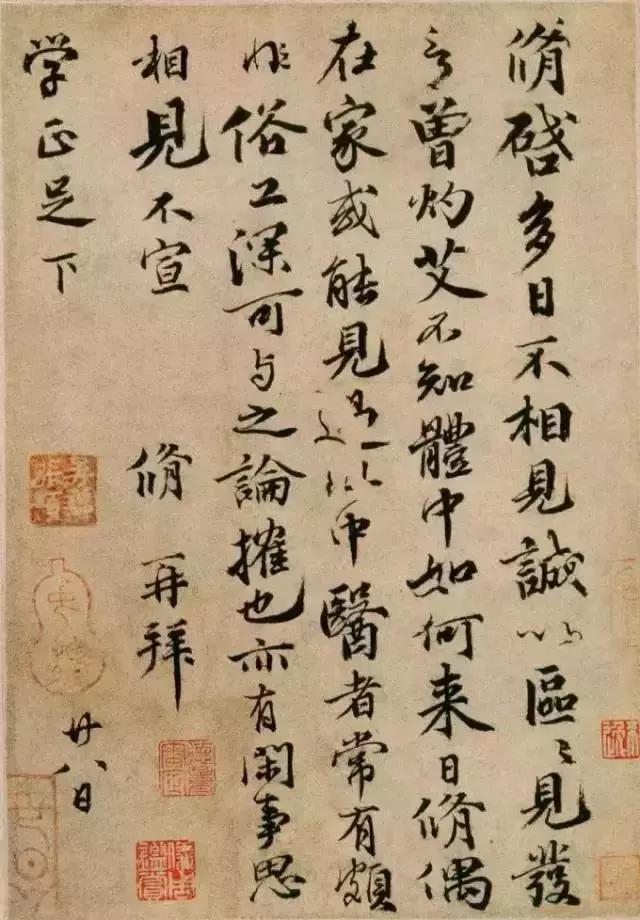 脩啓多日不相見誠以區〻見發
言曾灼艾不知體中如何来日脩偶
在家或能見過此中醫者常有頗
非俗工深可与之論搉也亦有閑事思
相見不宣
脩再拜
廿八日
学正足下